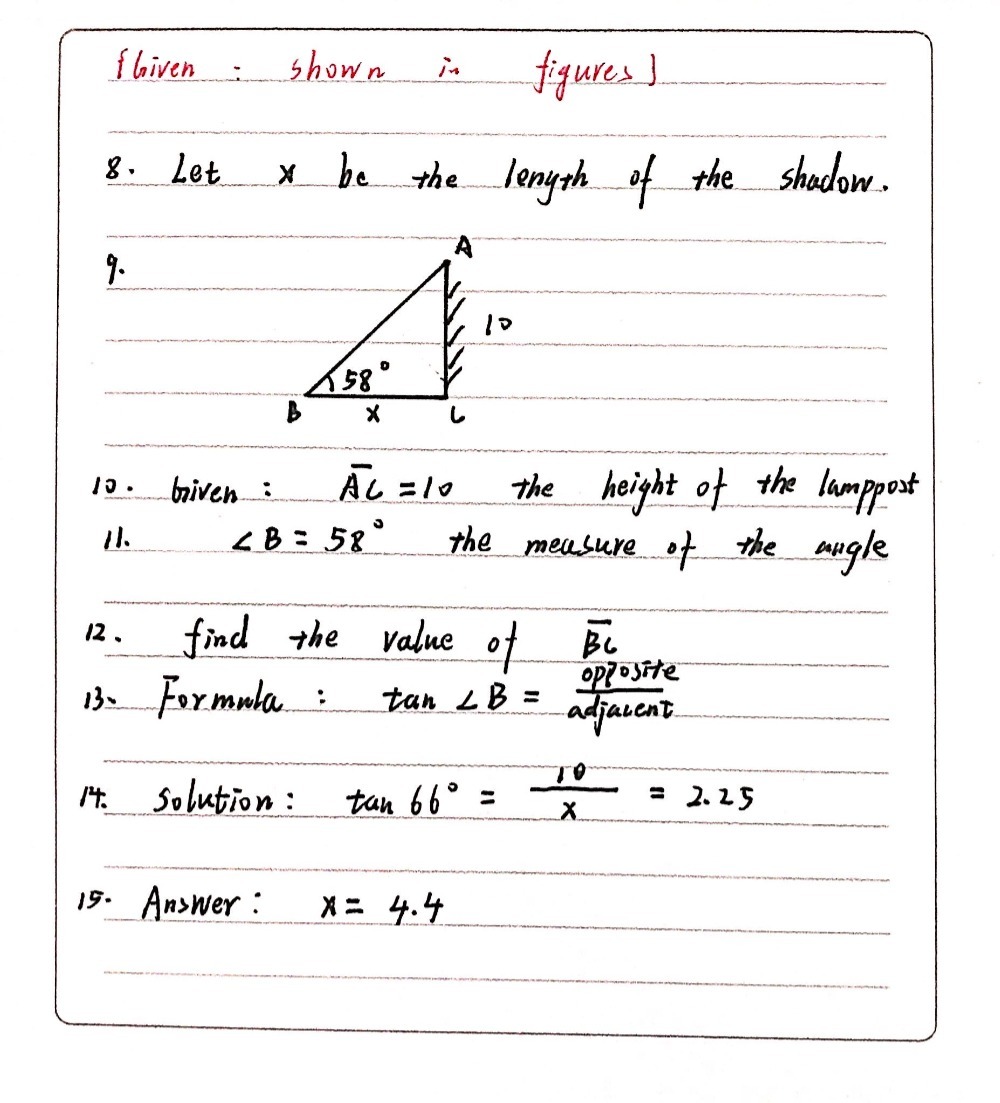 {Given : shown in figures}
8. Let x be the length of the shadow.
9.
A
10
58°
B x C
10. Given : A̅C̅ = 10 the height of the lamppost
11. ∠B = 58° the measure of the angle
12. find the value of B̅C̅
13. Formula : tan ∠B = opposite/adjacent
14. Solution : tan 66° = 10/x = 2.25
15. Answer : x = 4.4